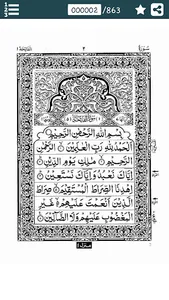 000002 /863
بِسْمِ اللّٰهِ الرَّحْمٰنِ الرَّحِيْمِ
اَلْحَمْدُ لِلّٰهِ رَبِّ الْعٰلَمِيْنَ ۝ الرَّحْمٰنِ
الرَّحِيْمِ ۝ مٰلِكِ يَوْمِ الدِّيْنِ ۝
اِيَّاكَ نَعْبُدُ وَاِيَّاكَ نَسْتَعِيْنُ ۝
اِهْدِنَا الصِّرَاطَ الْمُسْتَقِيْمَ ۝ صِرَاطَ
الَّذِيْنَ اَنْعَمْتَ عَلَيْهِمْ ۝ غَيْرِ
الْمَغْضُوْبِ عَلَيْهِمْ وَلَا الضَّآلِّيْنَ ۝